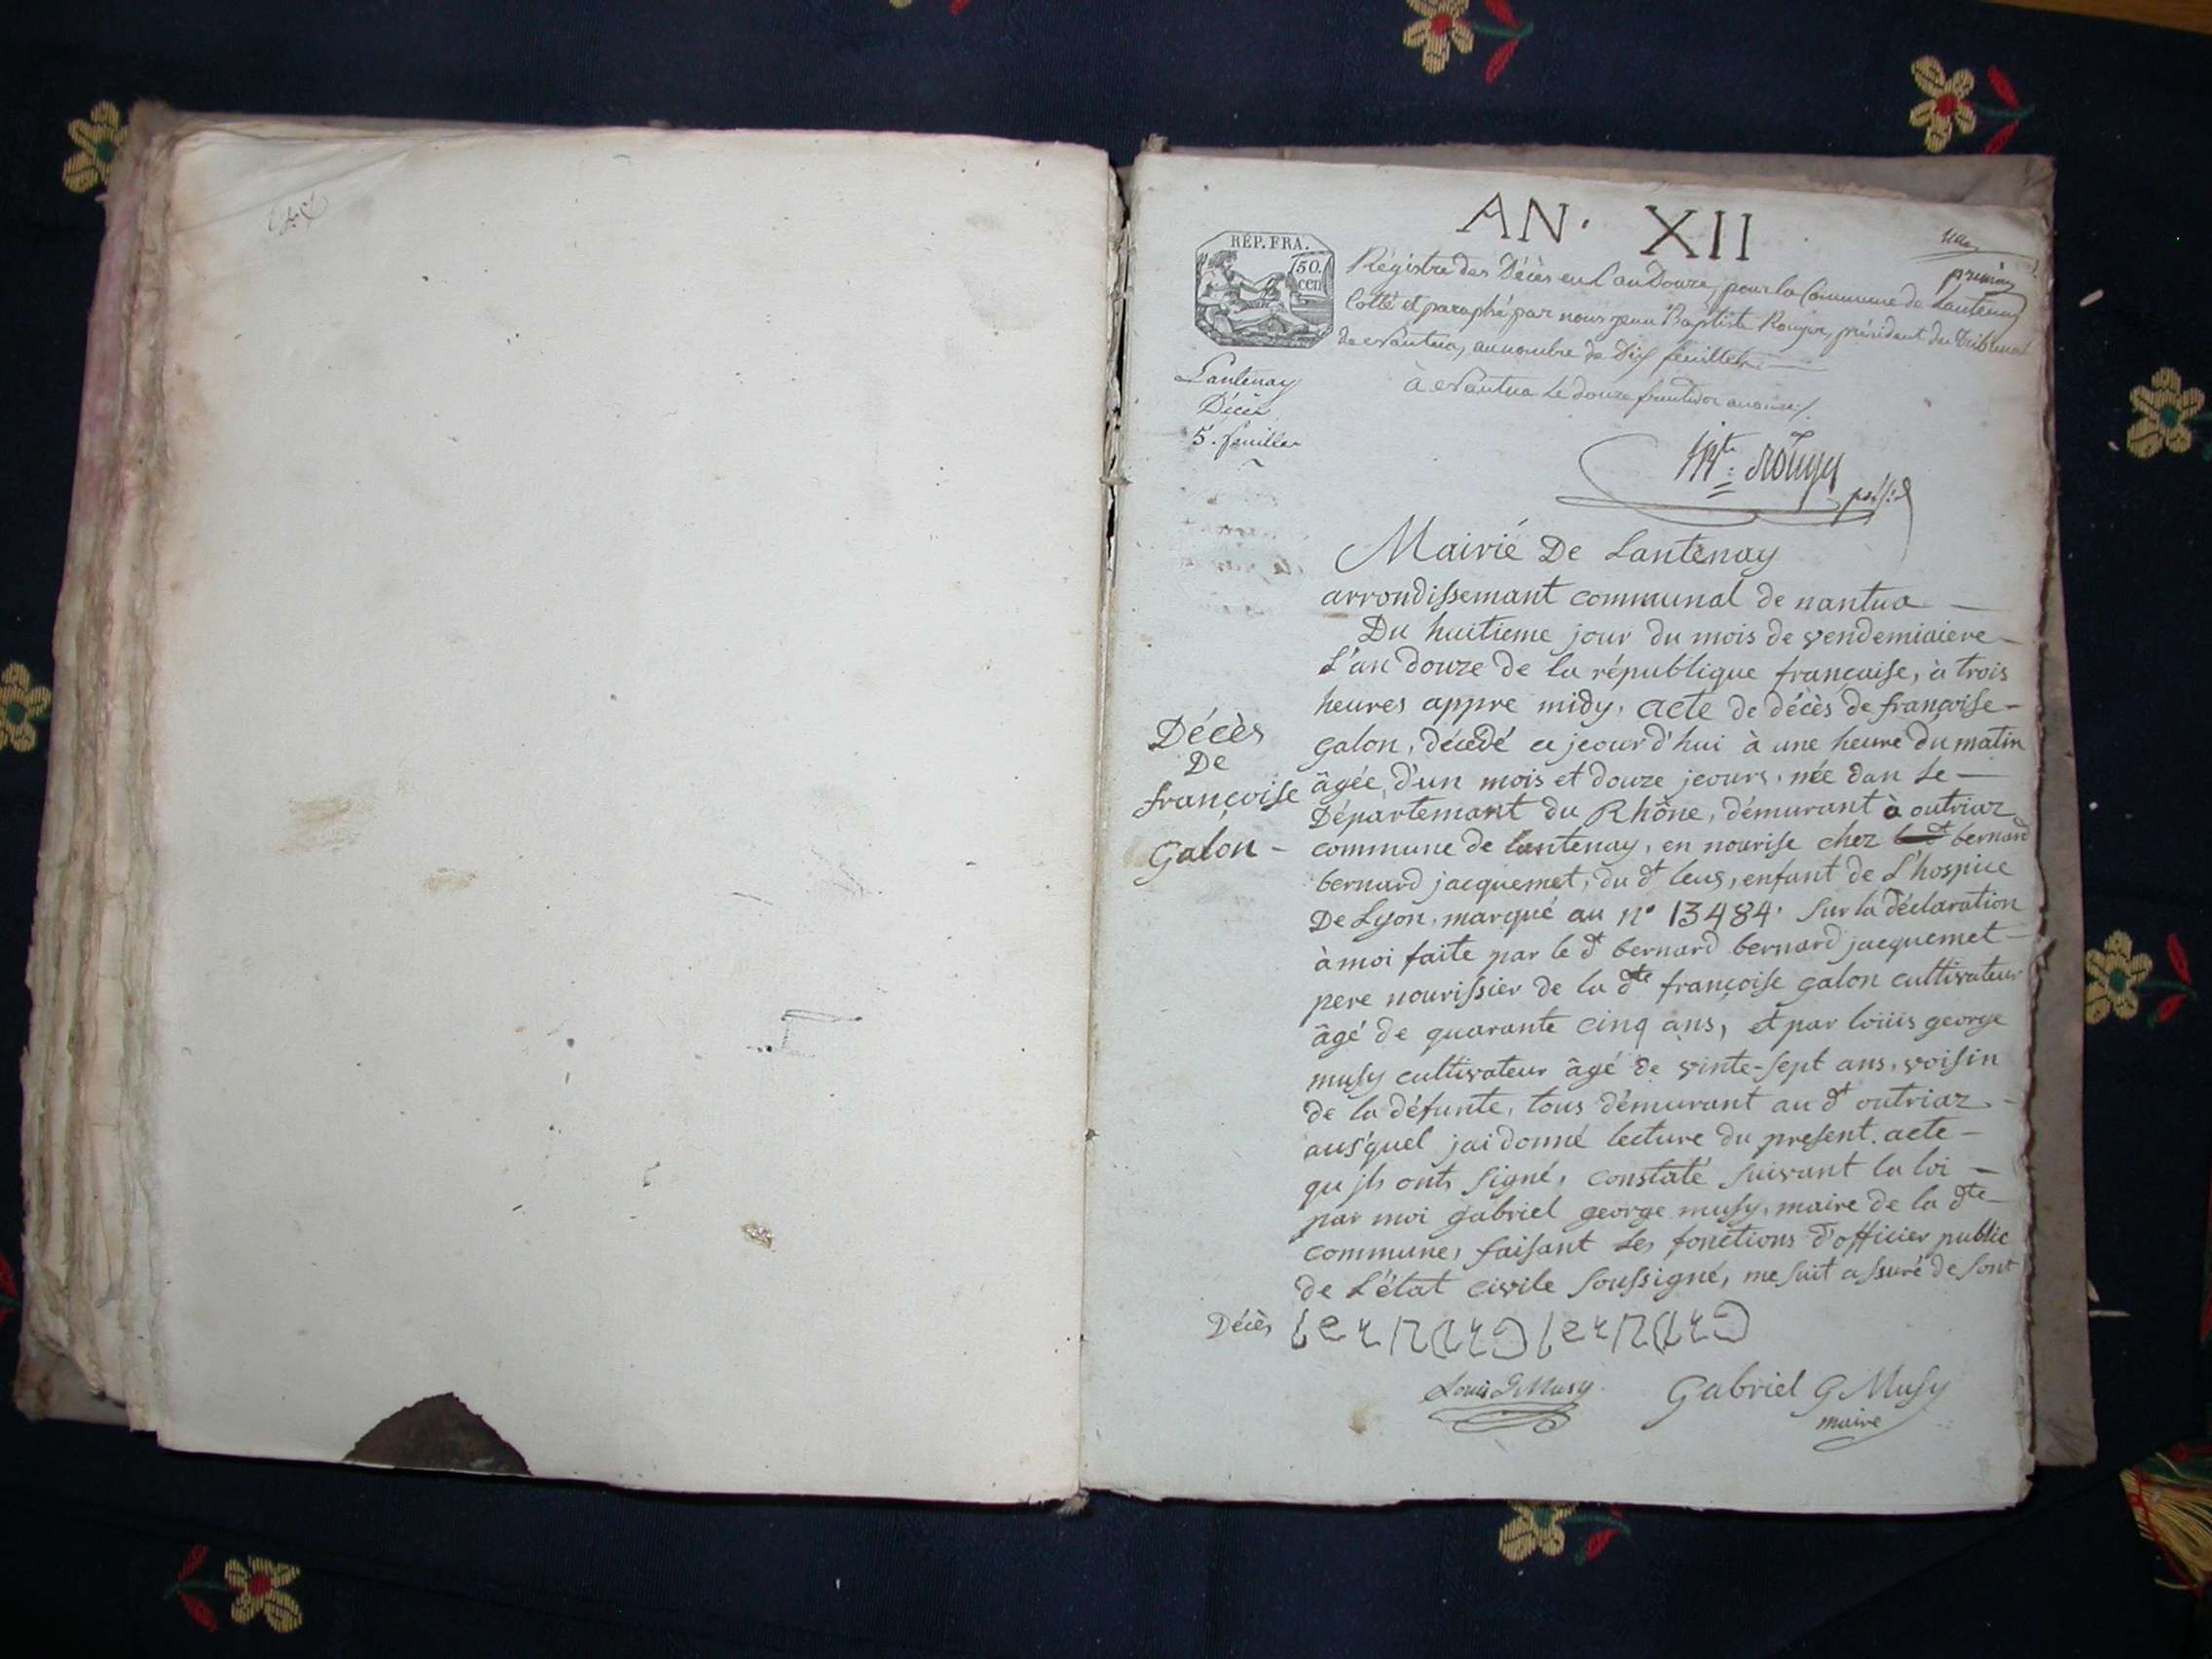 AN. XII
RÉP. FRA.
50.
cen
premier
Régistre des Décès en L'an Douze, pour la Commune de Lantenay
Cotté et paraphé par nous jean Baptiste Rouyer, président du Tribunal
de Nantua, au nombre de Dix feuillets.
à Nantua le douze fructidor an onze.
Lantenay
Décès
5. feuilles
Mairié De Lantenay
arrondissemant communal de nantua
Du huitieme jour du mois de vendemiaiere
L'an douze de la république francaise, à trois
heures appre midy, acte de décès de françoise
galon, décedé ce jeourd'hui à une heure du matin
âgée, d'un mois et douze jeours, née dan le
Département du Rhône, démurant à outriaz
commune de lantenay, en nourise chez bernard
bernard jacquemet, du dt leus, enfant de L'hospice
De Lyon, marqué au n° 13484. Sur la déclaration
à moi faite par le dt bernard bernard jacquemet
pere nourissier de la dte françoise galon cultivateur
âgé de quarante cinq ans, et par loüis george
musy cultivateur âgé de vinte-sept ans, voisin
de la défunte, tous démurant au dt outriaz
aus'quel jai donné lecture du present acte
qu jls onts signé, constaté suivant la loi
par moi gabriel george musy, maire de la dte
commune, faisant les fonctions d'officier public
de L'état civile soussigné, me suit assuré de sont
Décès
Décès
De
françoise
Galon
bernard bernard
Louis G Musy
Gabriel G Musy
maire